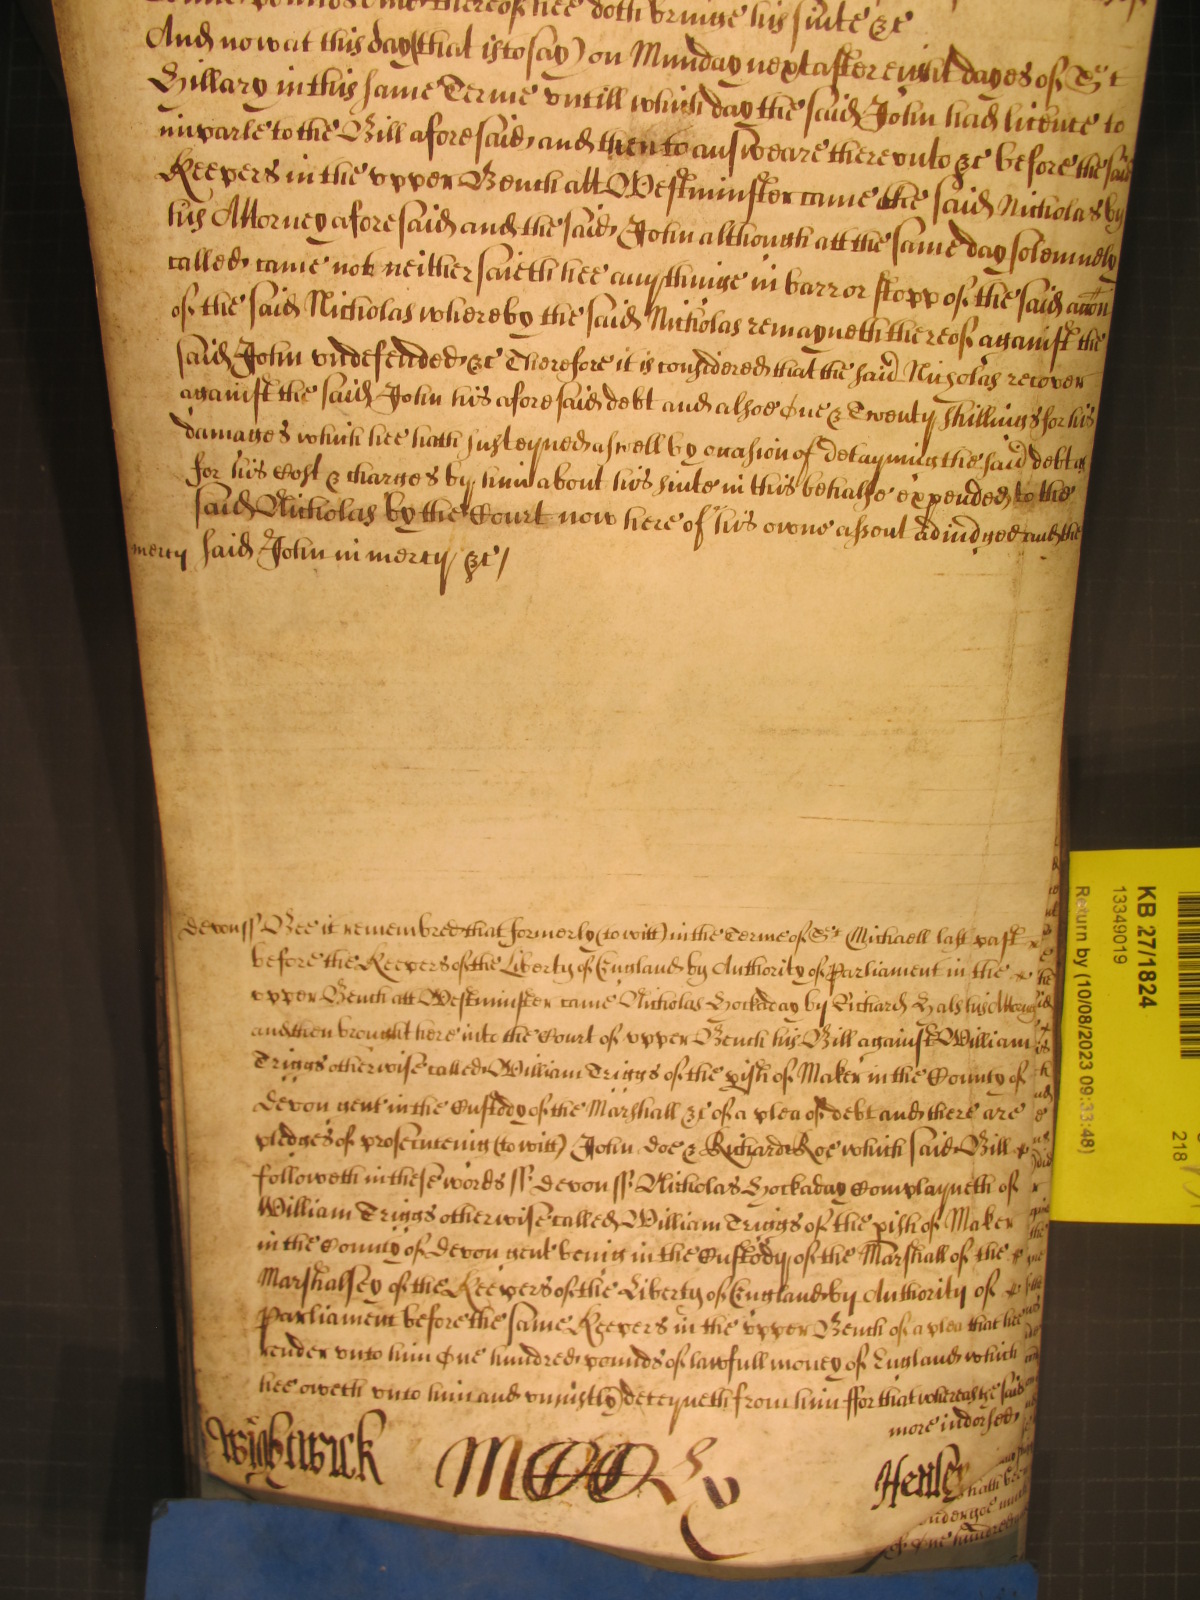 pounds And thereof hee doth bringe his suite &c
And now at this day (that is to say) on Munday next after eight dayes of St
Hillary in this same Terme untill which day the said John had licence to
imparle to the Bill aforesaid and then to answeare thereunto &c before the said
Keepers in the upper Bench att Westminster came the said Nicholas by
his Attorney aforesaid and the said John although att the same day solemnely
called came not neither saieth hee any thinge in barr or stopp of the said accon
of the said Nicholas whereby the said Nicholas remayneth thereof against the
said John undefended &c Therefore it is considered that the said Nicholas recover
against the said John his aforesaid debt and alsoe One & Twenty shillings for his
damages which hee hath susteyned aswell by occasion of detayning the said debt as
for his Cost & charges by him about his suite in this behalfe expended to the
said Nicholas by the Court now here of his owne assent adiudged and the
mercy said John in mercy &c/
Devon ss Bee it remembred that formerly (to witt) in the Terme of St Michaell last past
before the Keepers of the Liberty of England by Authority of Parliament in the
upper Bench att Westminster came Nicholas Hockaday by Richard Hals his Attorney
and then brought here into the Court of upper Bench his Bill against William
Triggs otherwise called William Triggs of the pish of Maker in the County of
Devon gent in the Custody of the Marshall &c of a plea of debt and there are
pledges of prosecuteing (to witt) John Doe & Richard Roe which said Bill
followeth in these words ss Devon ss Nicholas Hockaday Complayneth of
William Triggs otherwise called William Triggs of the pish of Maker
in the County of Devon gent being in the Custody of the Marshall of the
Marshalsey of the Keepers of the Liberty of England by Authority of
Parliament before the same Keepers in the upper Bench of a plea that hee
render unto him One hundred pounds of lawfull money of England which
hee oweth unto him and uniustly deteyneth from him ffor that whereas the said
more indorsed
Wightwick
Henley
of One hundred
KB 27/1824
13349019
Return by (10/08/2023 09:33:48)
218